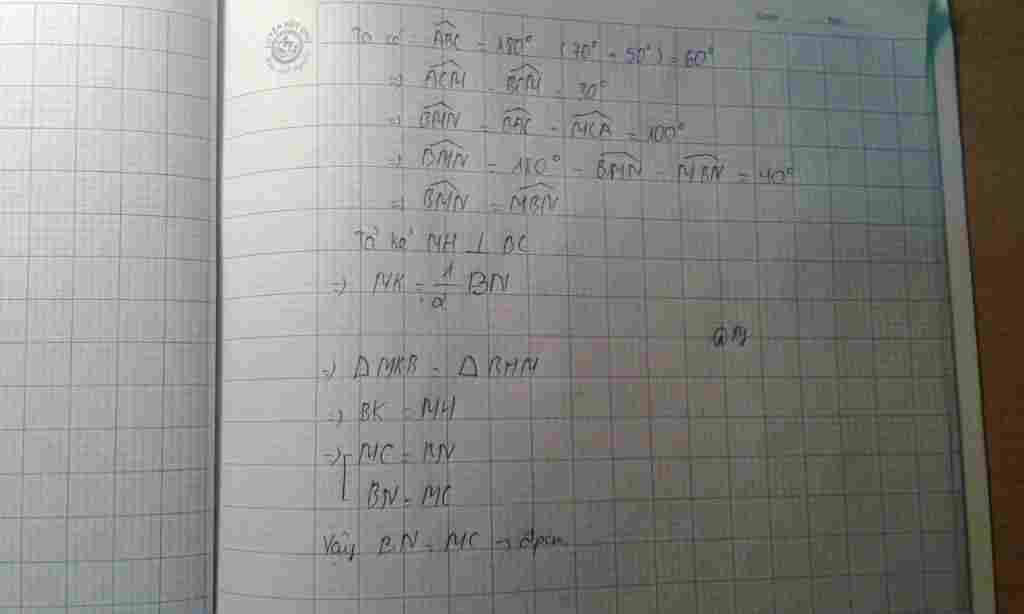 Ta có: ABC = 180° (70° + 50°) = 60°
=> ACM = BCM = 30°
=> BMN = BAC + MCA = 100°
=> BNM = 180° - BMN - MBN = 40°
=> BNM = MBN
Ta kẻ MH ⊥ BC
=> MK = 1/2 BN
=> Δ MKB = Δ BHM
=> BK = MH
=> MC = BN
BN = MC
Vậy BN = MC → đpcm